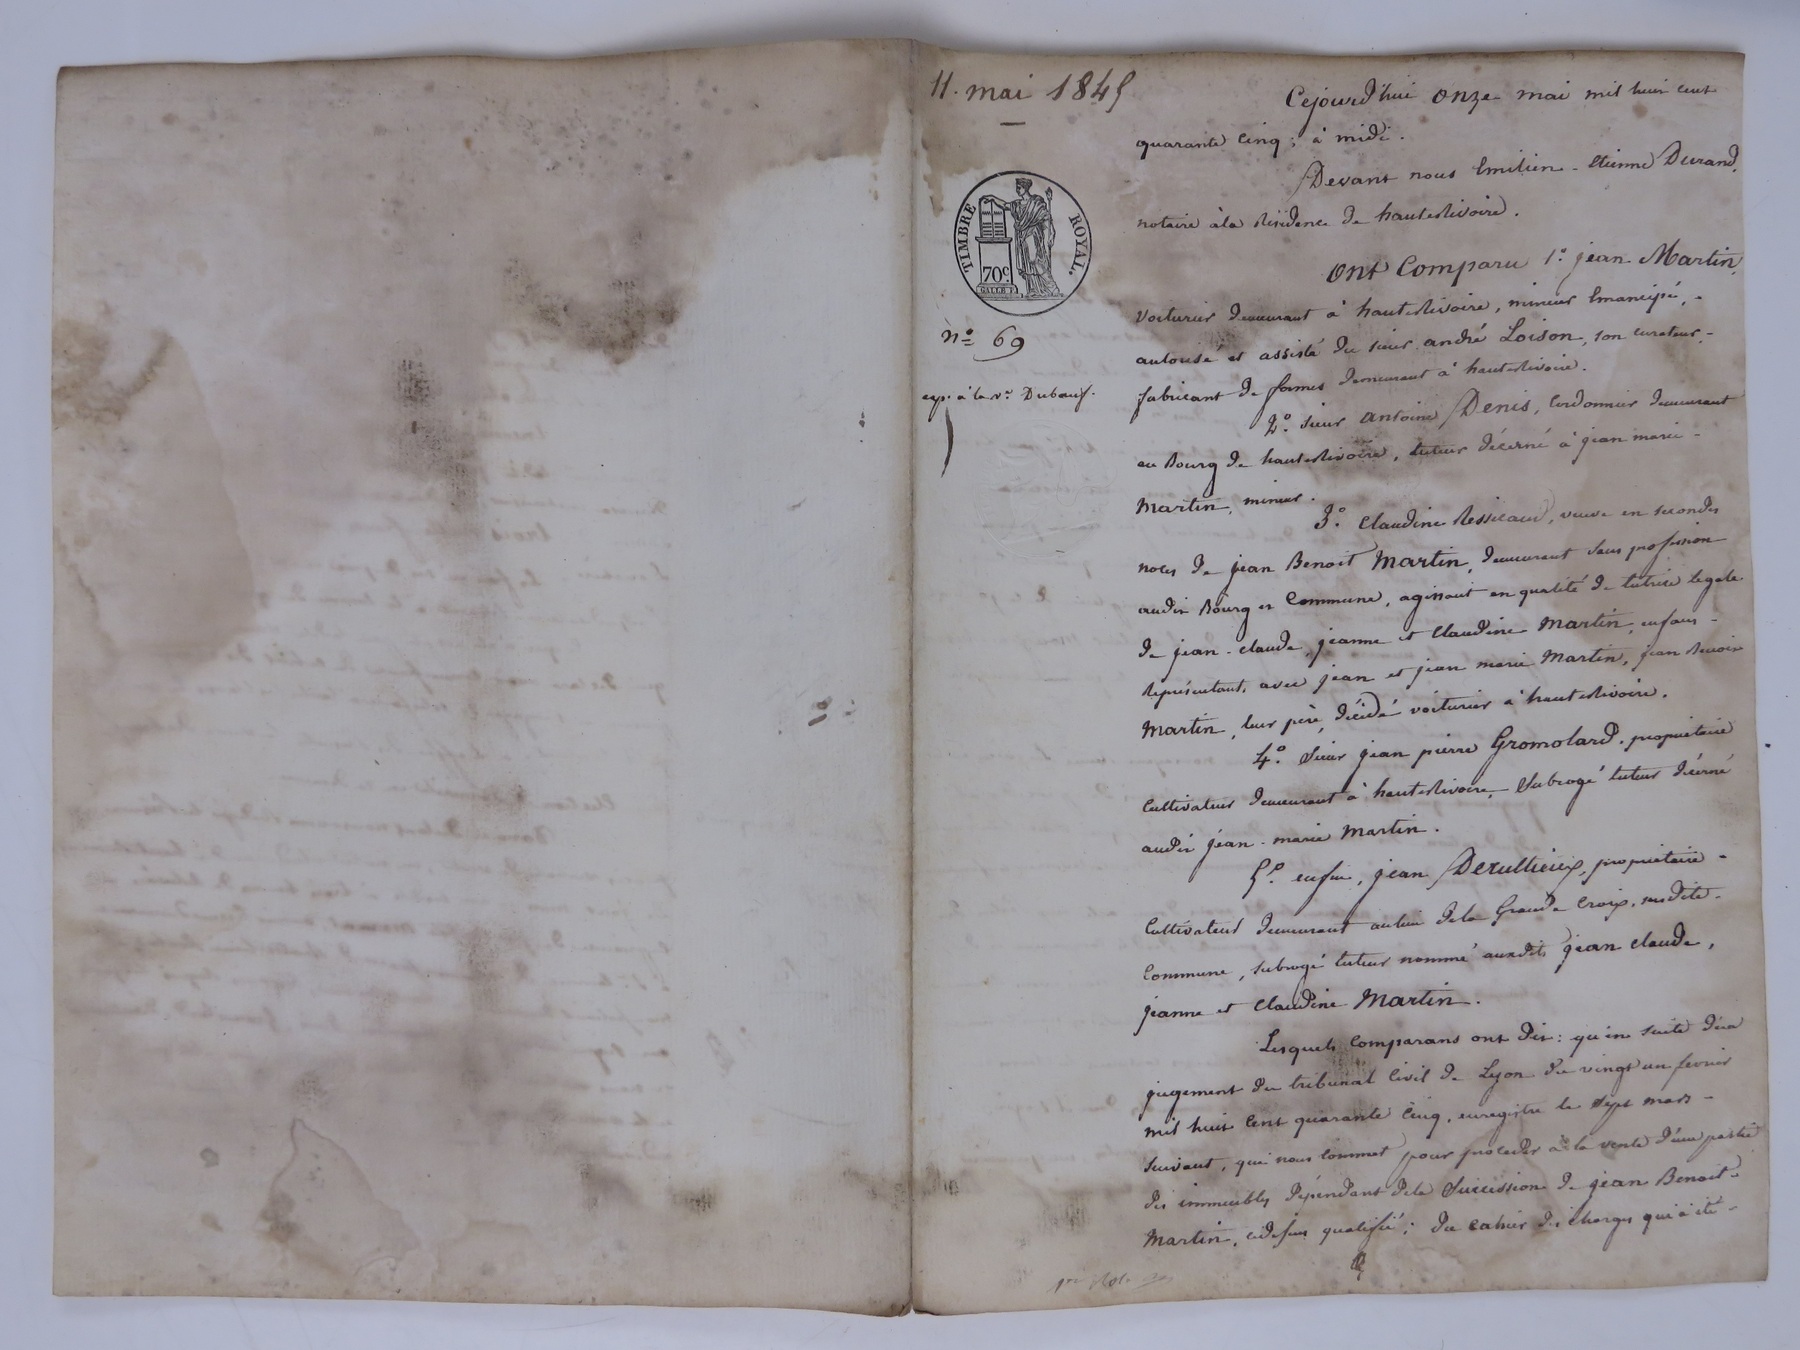 11. mai 1845
TIMBRE ROYAL.
70c
GALLE F.
n° 69
exp. à la ve. Dubœuf.
Cejourd'hui onze mai mil huit cent
quarante cinq, à midi.
Devant nous Emilien-Etienne Durand,
notaire à la résidence de hauterivoire.
Ont Comparu 1° jean Martin,
voiturier demeurant à hauterivoire, mineur émancipé, -
autorisé et assisté du sieur andré Loison, son curateur, -
fabricant de formes demeurant à hauterivoire.
2°. sieur antoine Denis, cordonnier demeurant
au Bourg de hauterivoire, tuteur décerné à jean marie -
Martin, mineur.
3°. Claudine, veuve en secondes
noces de jean Benoit Martin, demeurant sans profession
audit Bourg et Commune, agissant en qualité de tutrice légale
de jean-claude, jeanne et Claudine Martin, enfans -
représentant, avec jean et jean marie Martin, jean Benoit
Martin, leur père, décédé voiturier à hauterivoire.
4°. Sieur jean pierre Gromolard, propriétaire
Cultivateur demeurant à hauterivoire, Subrogé tuteur décerné
audit jean-marie Martin.
5°. enfin, jean Derullieux, propriétaire -
Cultivateur demeurant au lieu dela Grande Croix, susdite -
Commune, subrogé tuteur nommé auxdits jean claude,
jeanne et Claudine Martin.
Lesquels Comparans ont dit: qu'en suite d'un
jugement du tribunal Civil de Lyon du vingt un fevrier
mil huit cent quarante cinq, enregistré le sept mars -
suivant, qui nous commet pour procéder à la vente d'une partie
des immeubles dépendant dela Succession de jean Benoit -
Martin, cidessus qualifié; du cahier des charges qui a été -